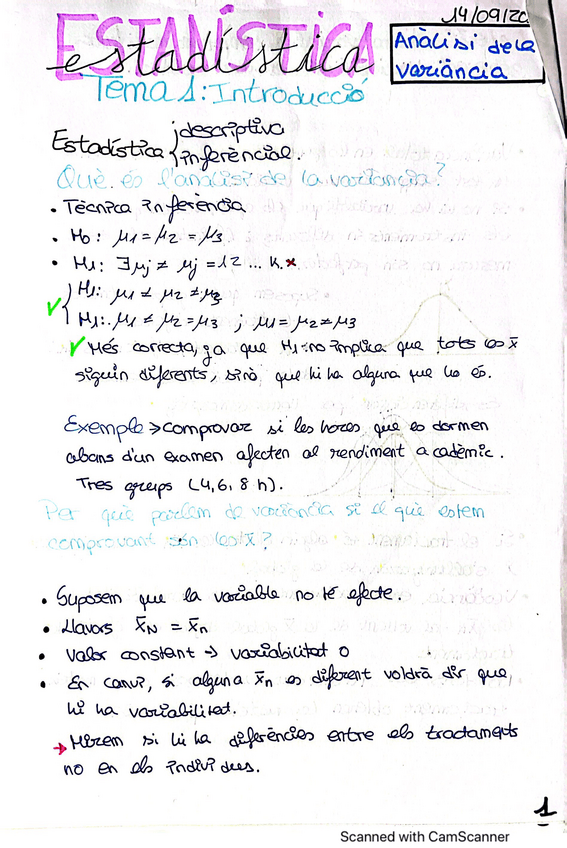 14/09/20
ESTADÍSTICA
estadística
Anàlisi de la
variància
Tema 1: Introducció
Estadística { descriptiva
inferèncial.
Què és l'anàlisi de la variància?
• Tècnica inferència
• H0: μ1 = μ2 = μ3
• H1: ∃μj ≠ μj = 1 2 ... K. ×
✓ { H1: μ1 ≠ μ2 ≠ μ3
H1: μ1 ≠ μ2 = μ3 ; μ1 = μ2 ≠ μ3
✓ Més correcta, ja que H1 no implica que totes les x̄
siguin diferents, sinó que hi ha alguna que ho és.
Exemple > comprovar si les hores que es dormen
abans d'un examen afecten al rendiment acadèmic.
Tres grups (4, 6, 8 h).
Per què parlem de variància si el que estem
comprovant són les x̄?
• Suposem que la variable no té efecte.
• Llavors x̄N = x̄n
• Valor constant → variabilitat 0
• En canvi, si alguna x̄n es diferent voldrà dir que
hi ha variabilitat.
→ Mirem si hi ha diferències entre els tractaments
no en els individues.
1
Scanned with CamScanner